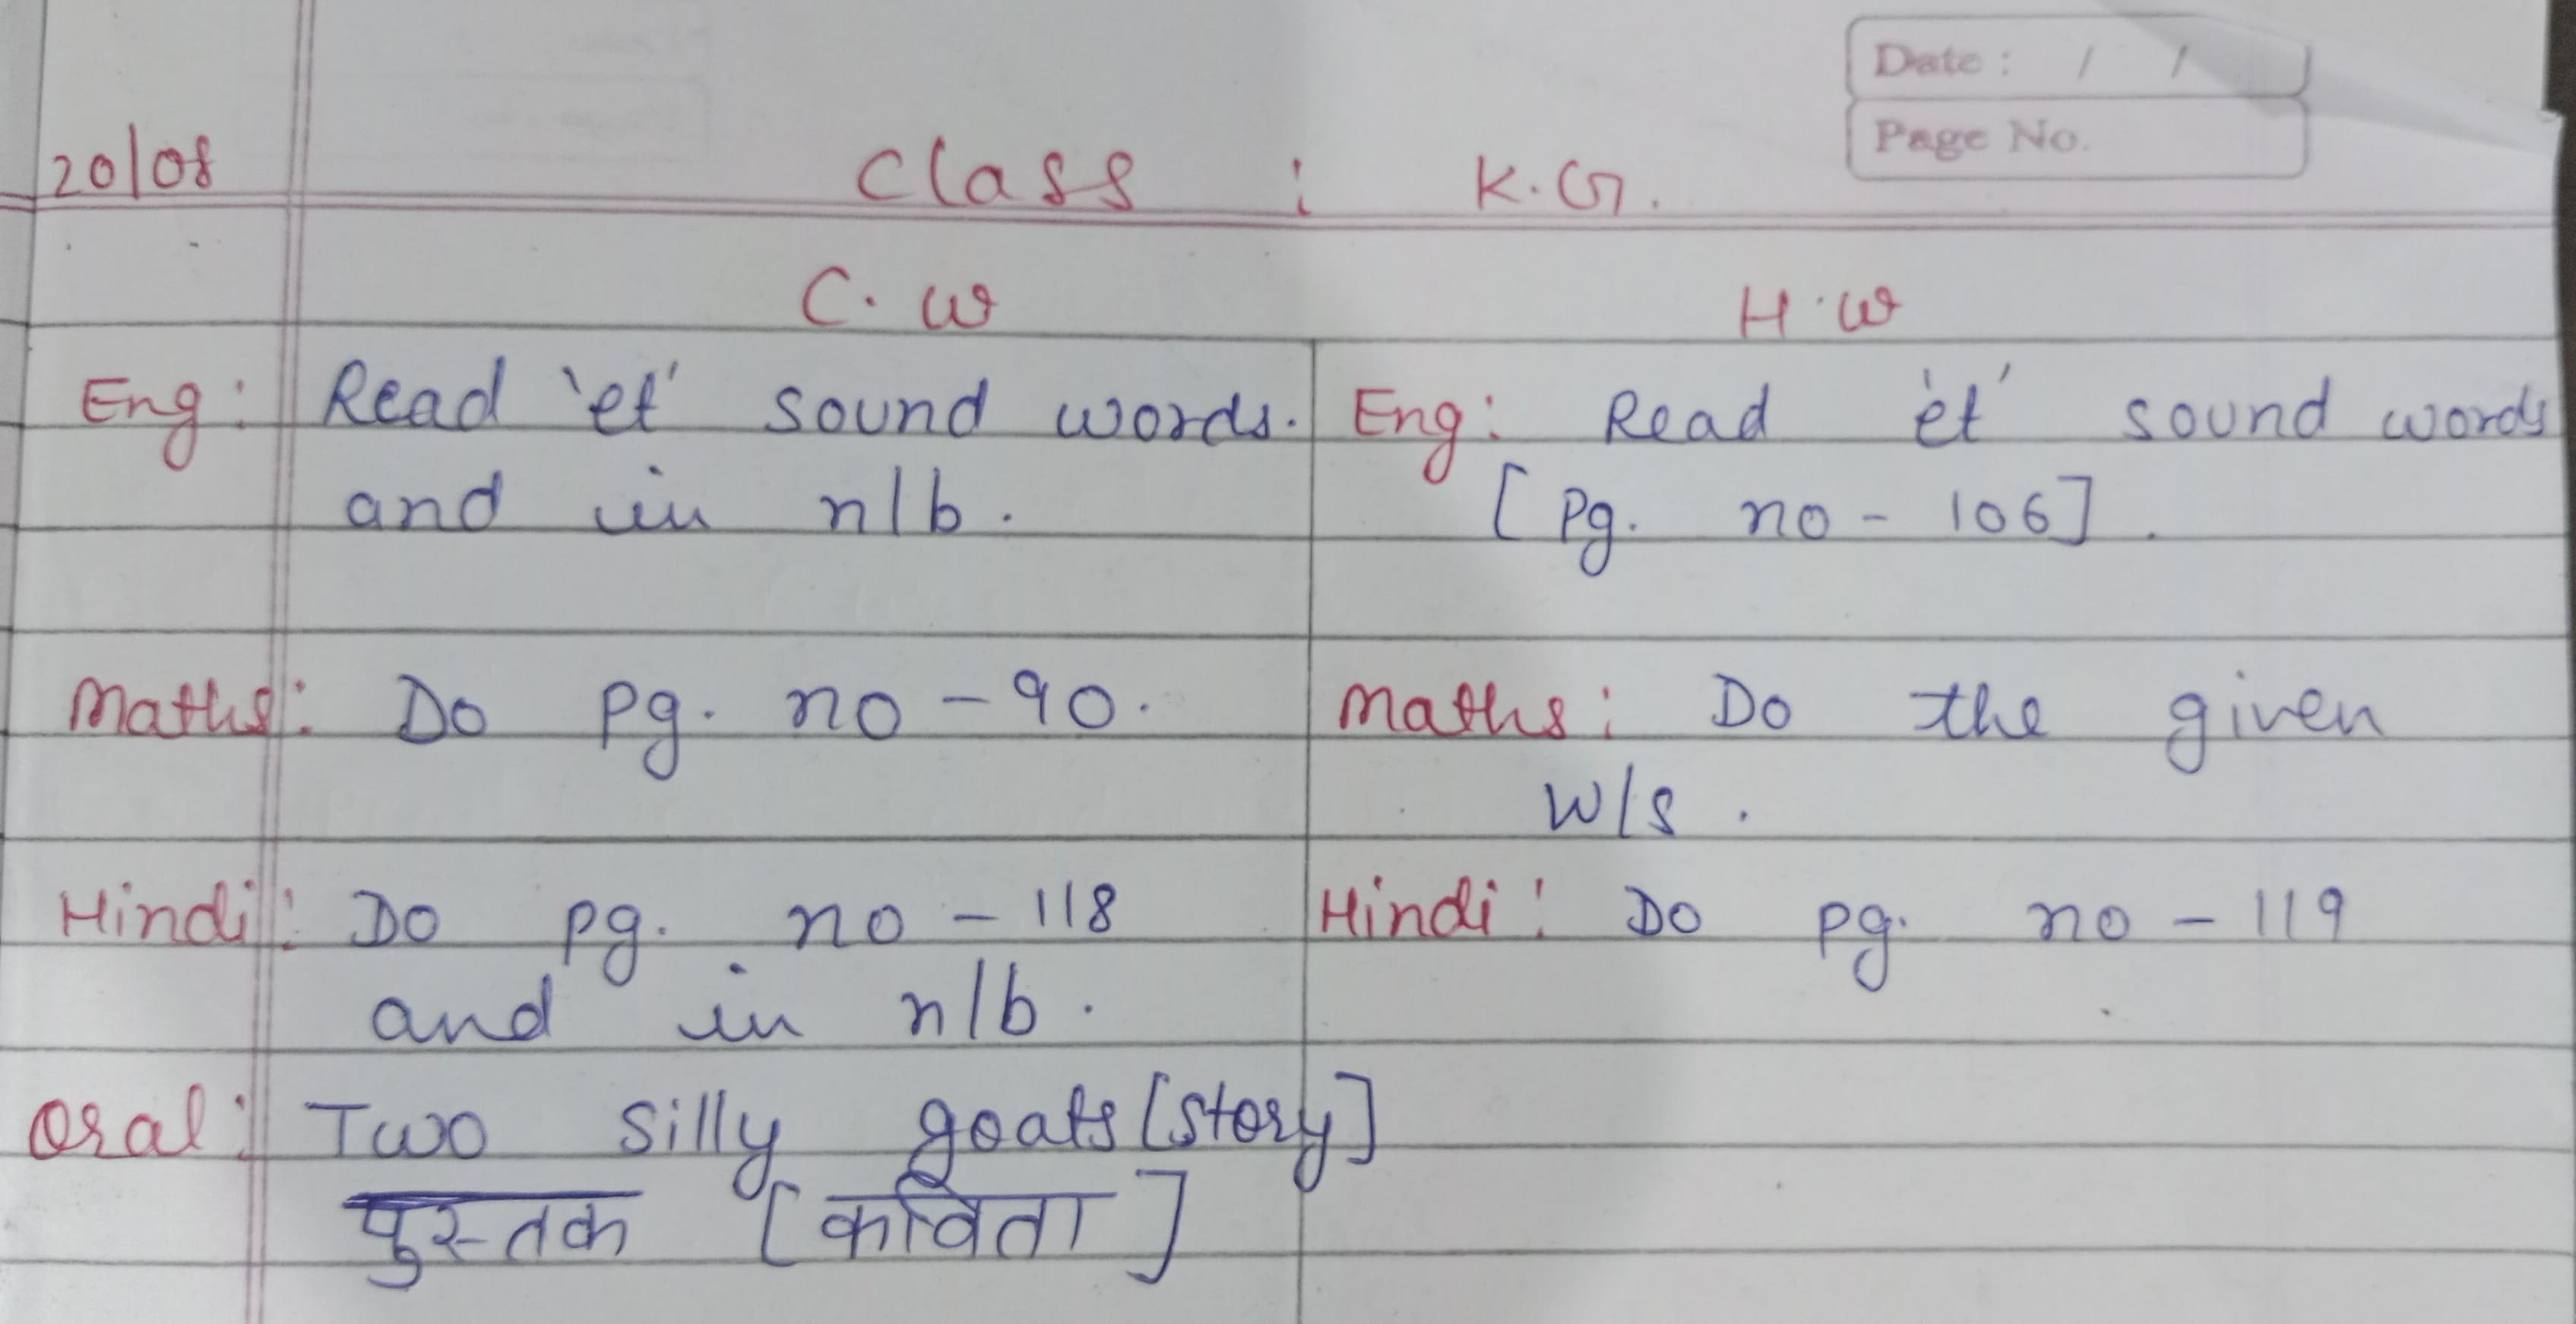 Date : / /
Page No.
20/08 Class : K.G.
C.W H.W
Eng: Read 'et' sound words. Eng: Read 'et' sound words
and in n/b. [Pg. no - 106].
Maths: Do Pg. no - 90. Maths: Do the given
W/S.
Hindi: Do pg. no - 118 Hindi: Do pg. no - 119
and in n/b.
Oral: Two silly goats [story]
पुस्तक [कविता]